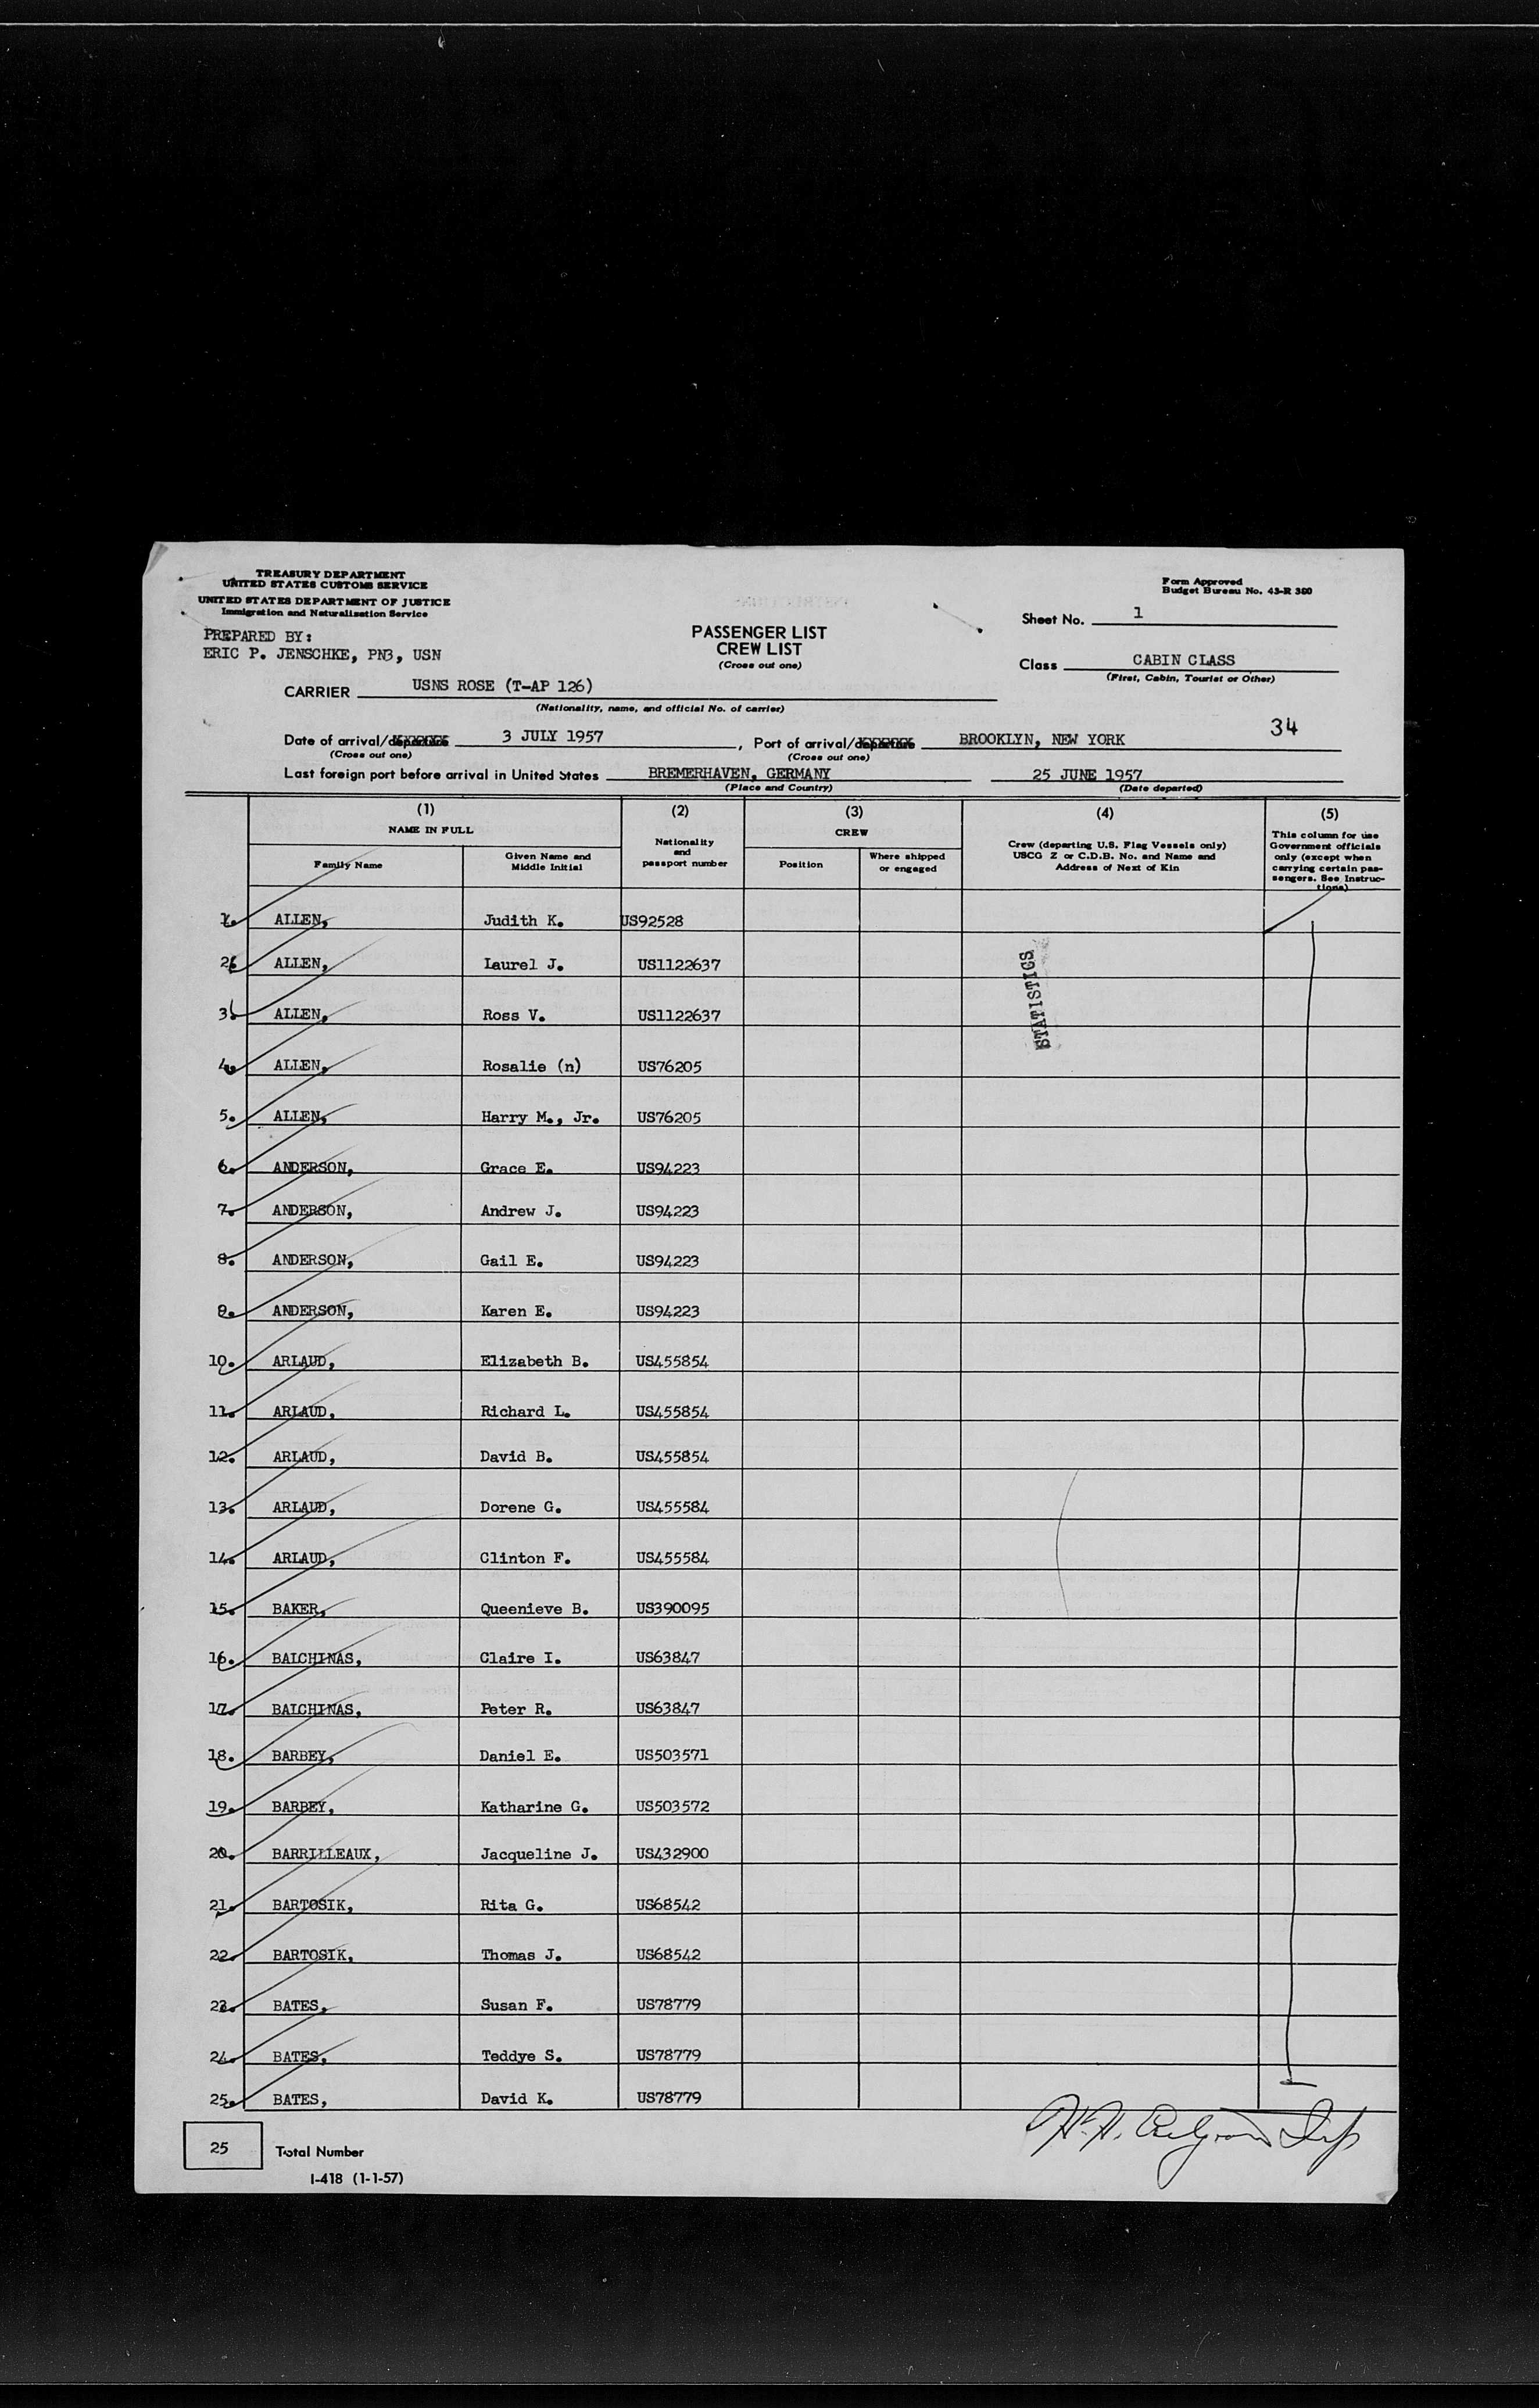 TREASURY DEPARTMENT
UNITED STATES CUSTOMS SERVICE
UNITED STATES DEPARTMENT OF JUSTICE
Immigration and Naturalization Service
PREPARED BY:
ERIC P. JENSCHKE, PN3, USN
Form Approved
Budget Bureau No. 43-R 380
PASSENGER LIST
CREW LIST
(Cross out one)
Sheet No. 1
Class CABIN CLASS
(First, Cabin, Tourist or Other)
CARRIER USNS ROSE (T-AP 126)
(Nationality, name, and official No. of carrier)
34
Date of arrival/departure 3 JULY 1957, Port of arrival/departure BROOKLYN, NEW YORK
(Cross out one) (Cross out one)
Last foreign port before arrival in United States BREMERHAVEN, GERMANY 25 JUNE 1957
(Place and Country) (Date departed)
(1) (2) (3) (4) (5)
NAME IN FULL
Family Name
Given Name and
Middle Initial
Nationality
and
passport number
CREW
Position
Where shipped
or engaged
Crew (departing U.S. Flag Vessels only)
USCG Z or C.D.B. No. and Name and
Address of Next of Kin
This column for use
Government officials
only (except when
carrying certain pas-
sengers. See Instruc-
tions)
1. ALLEN, Judith K. US92528
2. ALLEN, Laurel J. US1122637
3. ALLEN, Ross V. US1122637
4. ALLEN, Rosalie (n) US76205
5. ALLEN, Harry M., Jr. US76205
6. ANDERSON, Grace E. US94223
7. ANDERSON, Andrew J. US94223
8. ANDERSON, Gail E. US94223
9. ANDERSON, Karen E. US94223
10. ARLAUD, Elizabeth B. US455854
11. ARLAUD, Richard L. US455854
12. ARLAUD, David B. US455854
13. ARLAUD, Dorene G. US455584
14. ARLAUD, Clinton F. US455584
15. BAKER, Queenieve B. US390095
16. BALCHINAS, Claire I. US63847
17. BALCHINAS, Peter R. US63847
18. BARBEY, Daniel E. US503571
19. BARBEY, Katharine G. US503572
20. BARRILLEAUX, Jacqueline J. US432900
21. BARTOSIK, Rita G. US68542
22. BARTOSIK, Thomas J. US68542
23. BATES, Susan F. US78779
24. BATES, Teddye S. US78779
25. BATES, David K. US78779
STATISTICS
25 Total Number
I-418 (1-1-57)